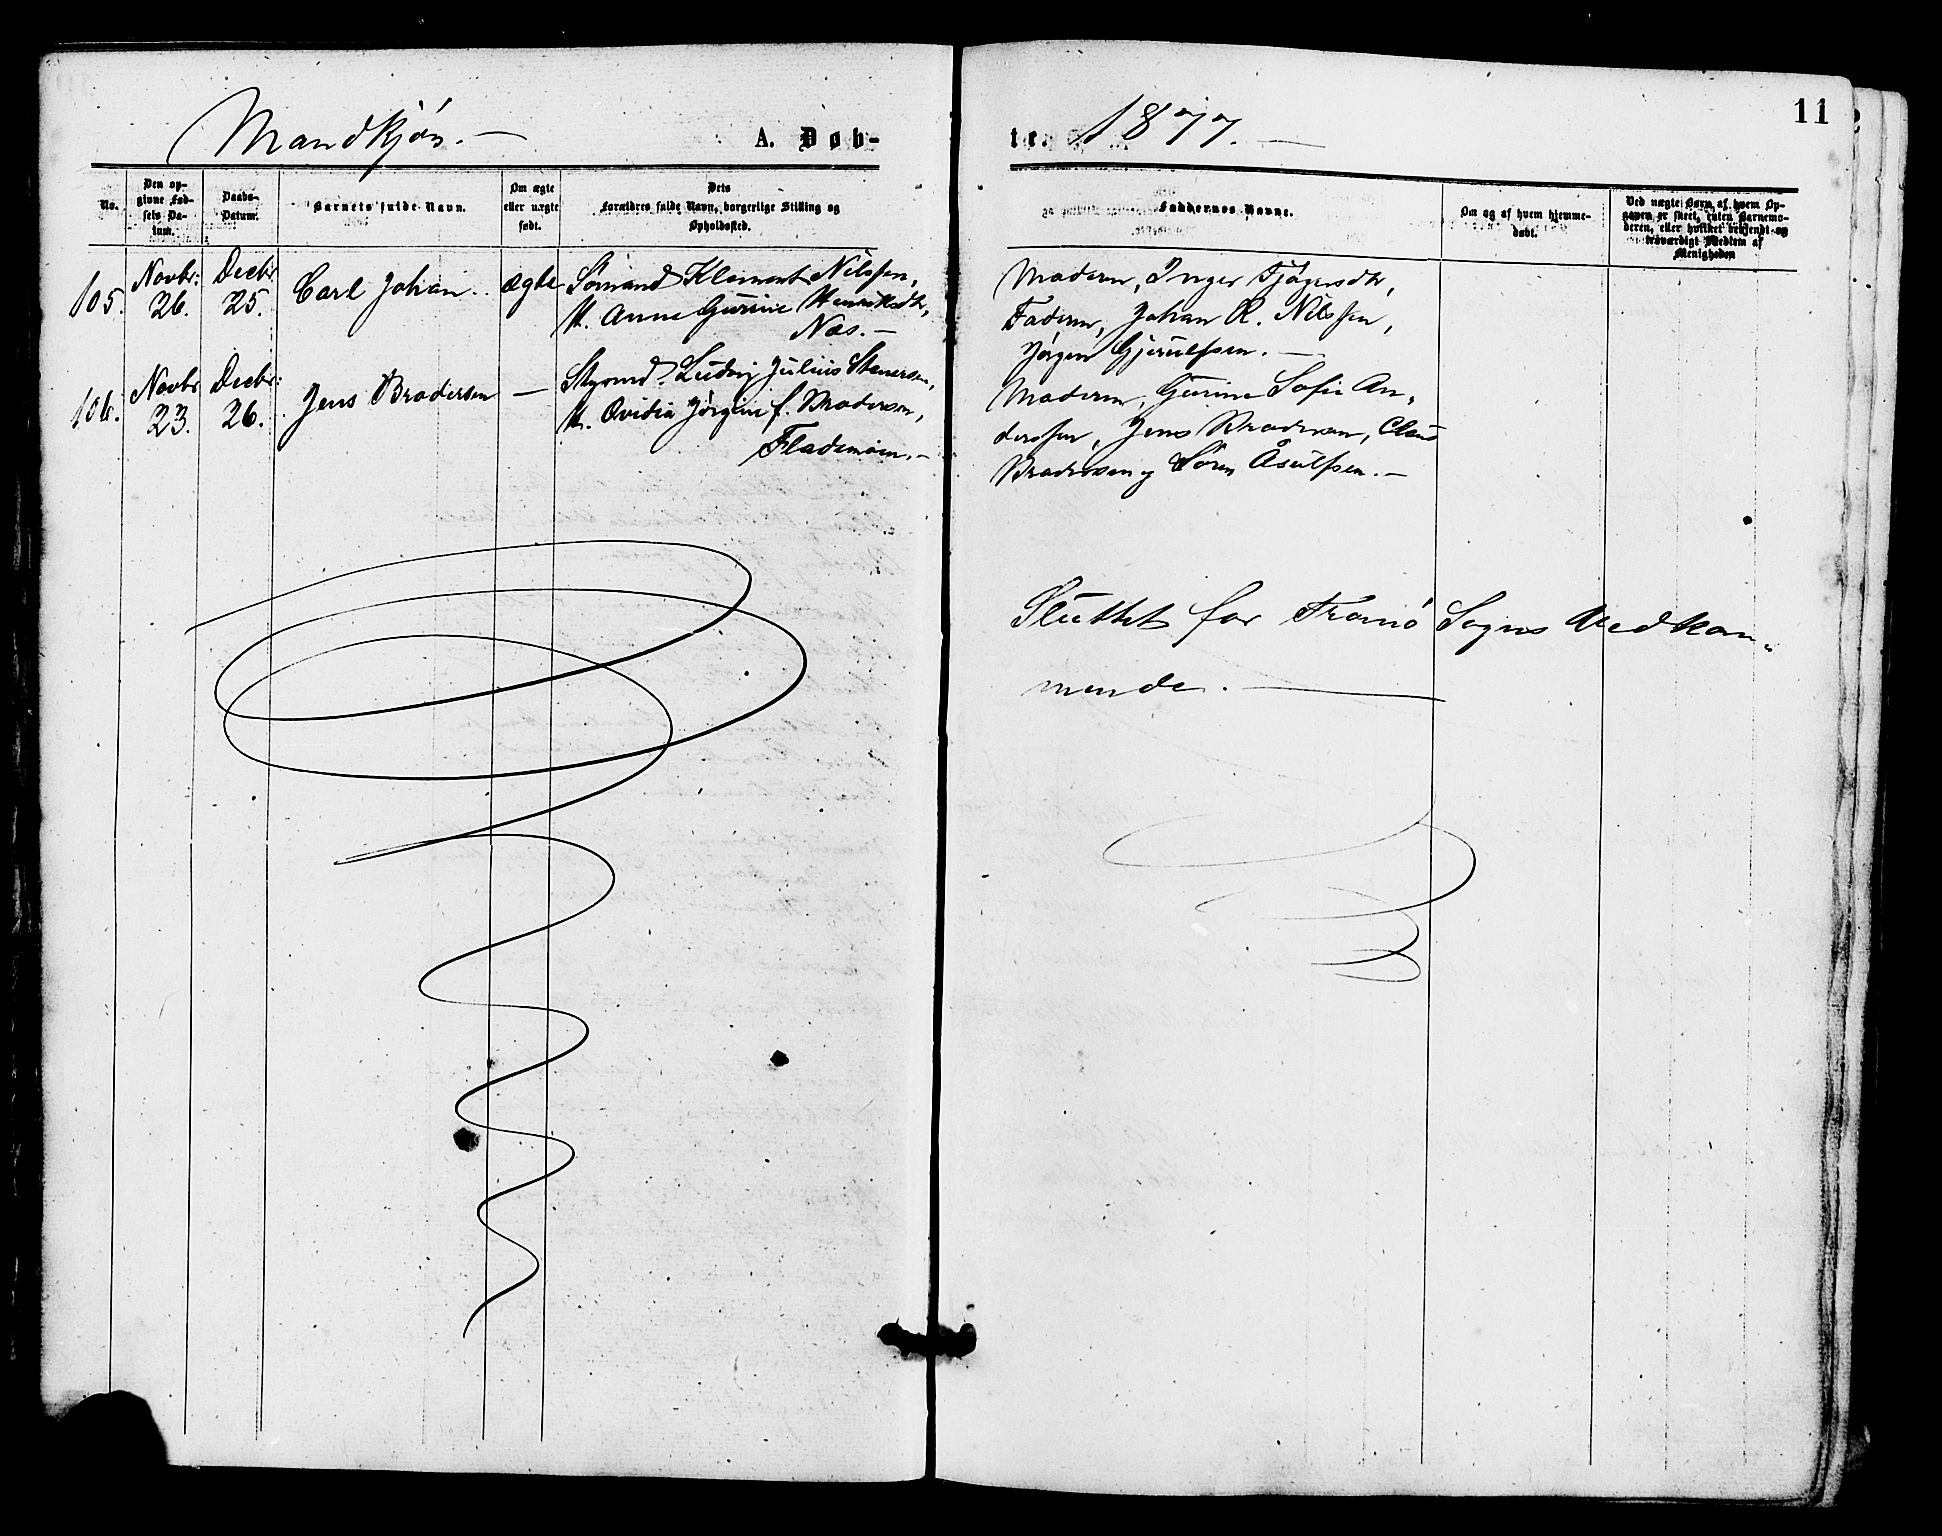 11
Mandkjøn. —
A. Døb-
te. 1877. —
No.
Den op-
givne Fød-
sels Da-
tum.
Daabs-
Datum.
Barnets fulde Navn.
Om ægte
eller uægte
født.
Dets
Forældres fulde Navn, borgerlige Stilling og
Opholdssted.
Faddernes Navne.
Om og af hvem hjemme-
døbt.
Ved uægte Børn af hvem Op-
gaven er skeet, enten Barnemo-
deren, eller hvilket bekjendt og
troværdigt Medlem af
Menigheden
105. Novbr: 26. Decbr 25. Carl Johan. ægte
Sømand Klement Nilssen,
H. Anne Gurine Henriksdtr,
Næs. —
Moderen, Inger
Faderen, Johan R. Nilssen,
Jørgen Gjerulfsen. —
106. Novbr 23. Decbr: 26. Jens Brodersen —
Styrmd. Ludvig Julius Stenersen,
H. Ovidia Jørgine f. Brodersen,
Flademoen. —
Moderen, Gurine Sofie An-
derssen, Jens Brodersen, Claus
Brodersen og Søren Åsulfsen. —
Sluttet for Tromø Sogns Vedkom-
mende. —